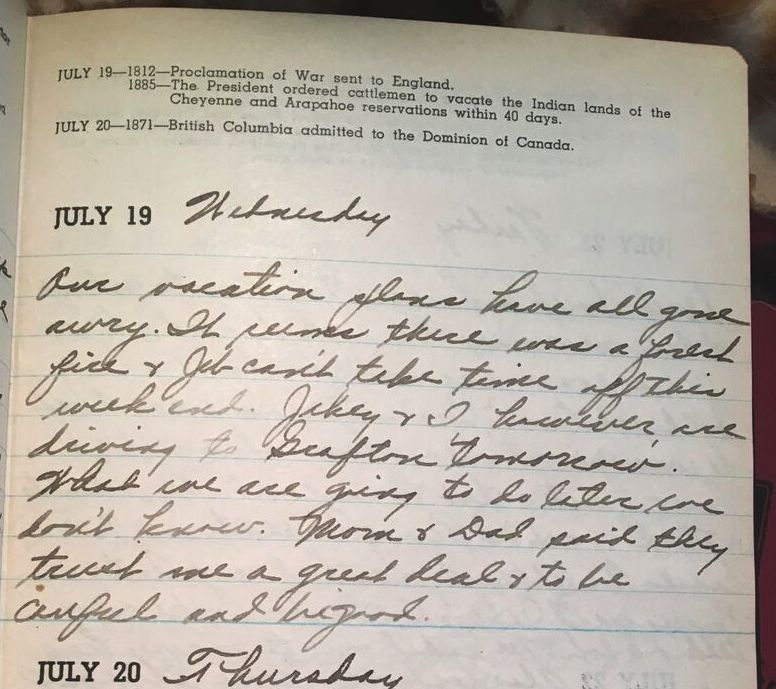 JULY 19—1812—Proclamation of War sent to England.
1885—The President ordered cattlemen to vacate the Indian lands of the
Cheyenne and Arapahoe reservations within 40 days.
JULY 20—1871—British Columbia admitted to the Dominion of Canada.
JULY 19 Wednesday
Our vacation plans have all gone
awry. It seems there was a forest
fire & Jeb can't take time off this
week end. Jikey & I however are
driving to Grafton tomorrow.
What we are going to do later we
don't know. Mom & Dad said they
trust me a great deal & to be
careful and be good.
JULY 20 Thursday